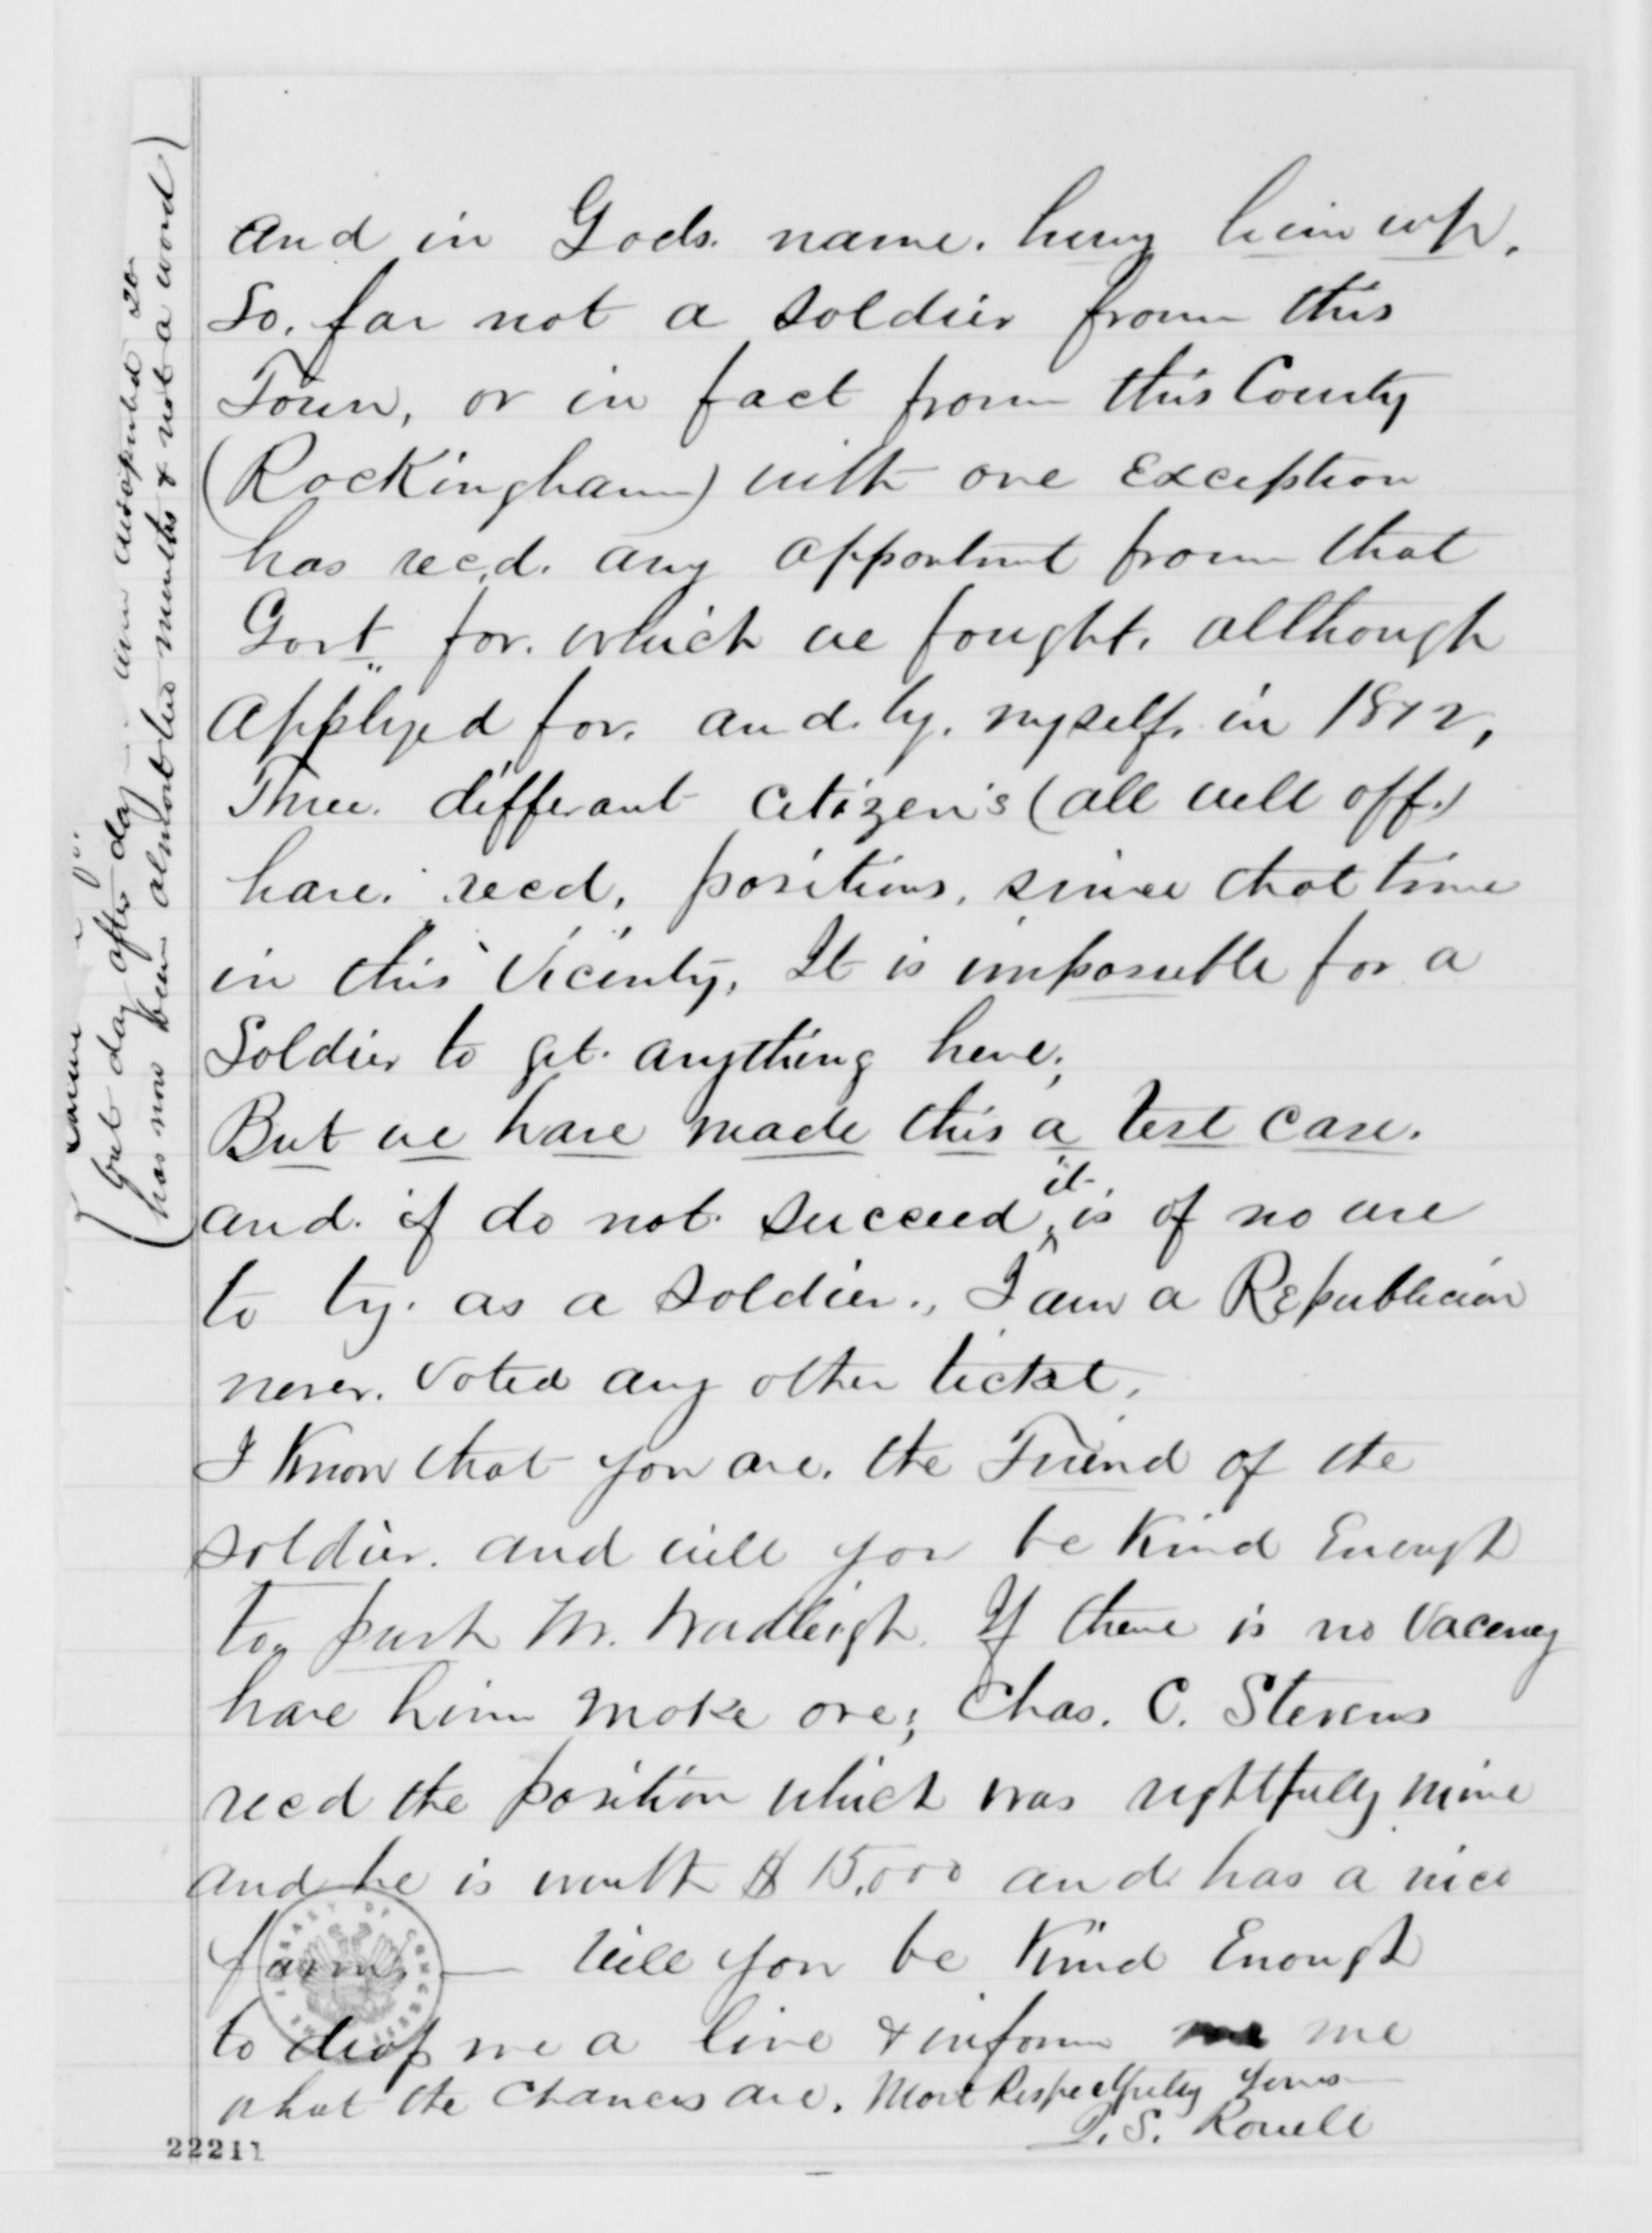 and in Gods. name. hurry him up.
So. far not a soldier from this
Town, or in fact from this County
(Rockingham) with one Exception
has recd. any appontmt from that
Govt for. which we fought. allthough
applyed for. and. by. myself. in 1872,
Three. differant citizen's (all well off.)
have. recd. positions. since that time
in this Vicinty, It is impossible for a
Soldier to get. anything here;
But we have made this a test case.
and. if do not. succeed it is of no use
to try. as a soldier., I am a Republician
never. voted any other ticket.
I Know that you are. the Friend of the
soldier. and will you be Kind Enough
to push Mr. Wadleigh. If there is no Vacency
have him make one; Chas. C. Stevens
recd the position which was rightfully mine
and he is worth $15,000 and has a nice
farm. — Will you be Kind Enough
to drop me a line & inform me
what the Chances are. Most Respectfully Yours
S. Rowell
22211
but day after day am disapointed so
has now been almost two months & not a word)
LIBRARY OF CONGRESS